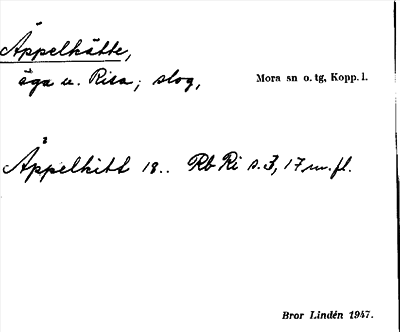 Äppelkätte,
äga u. Risa; slog, Mora sn o. tg, Kopp. l.
Äppelkitt 18.. Rb Ri s. 3, 17 m. fl.
Bror Lindén 1947.